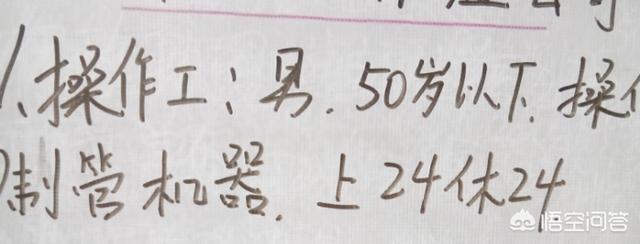 1、操作工：男.50岁以下.操作
制管机器.上24休24
悟空问答